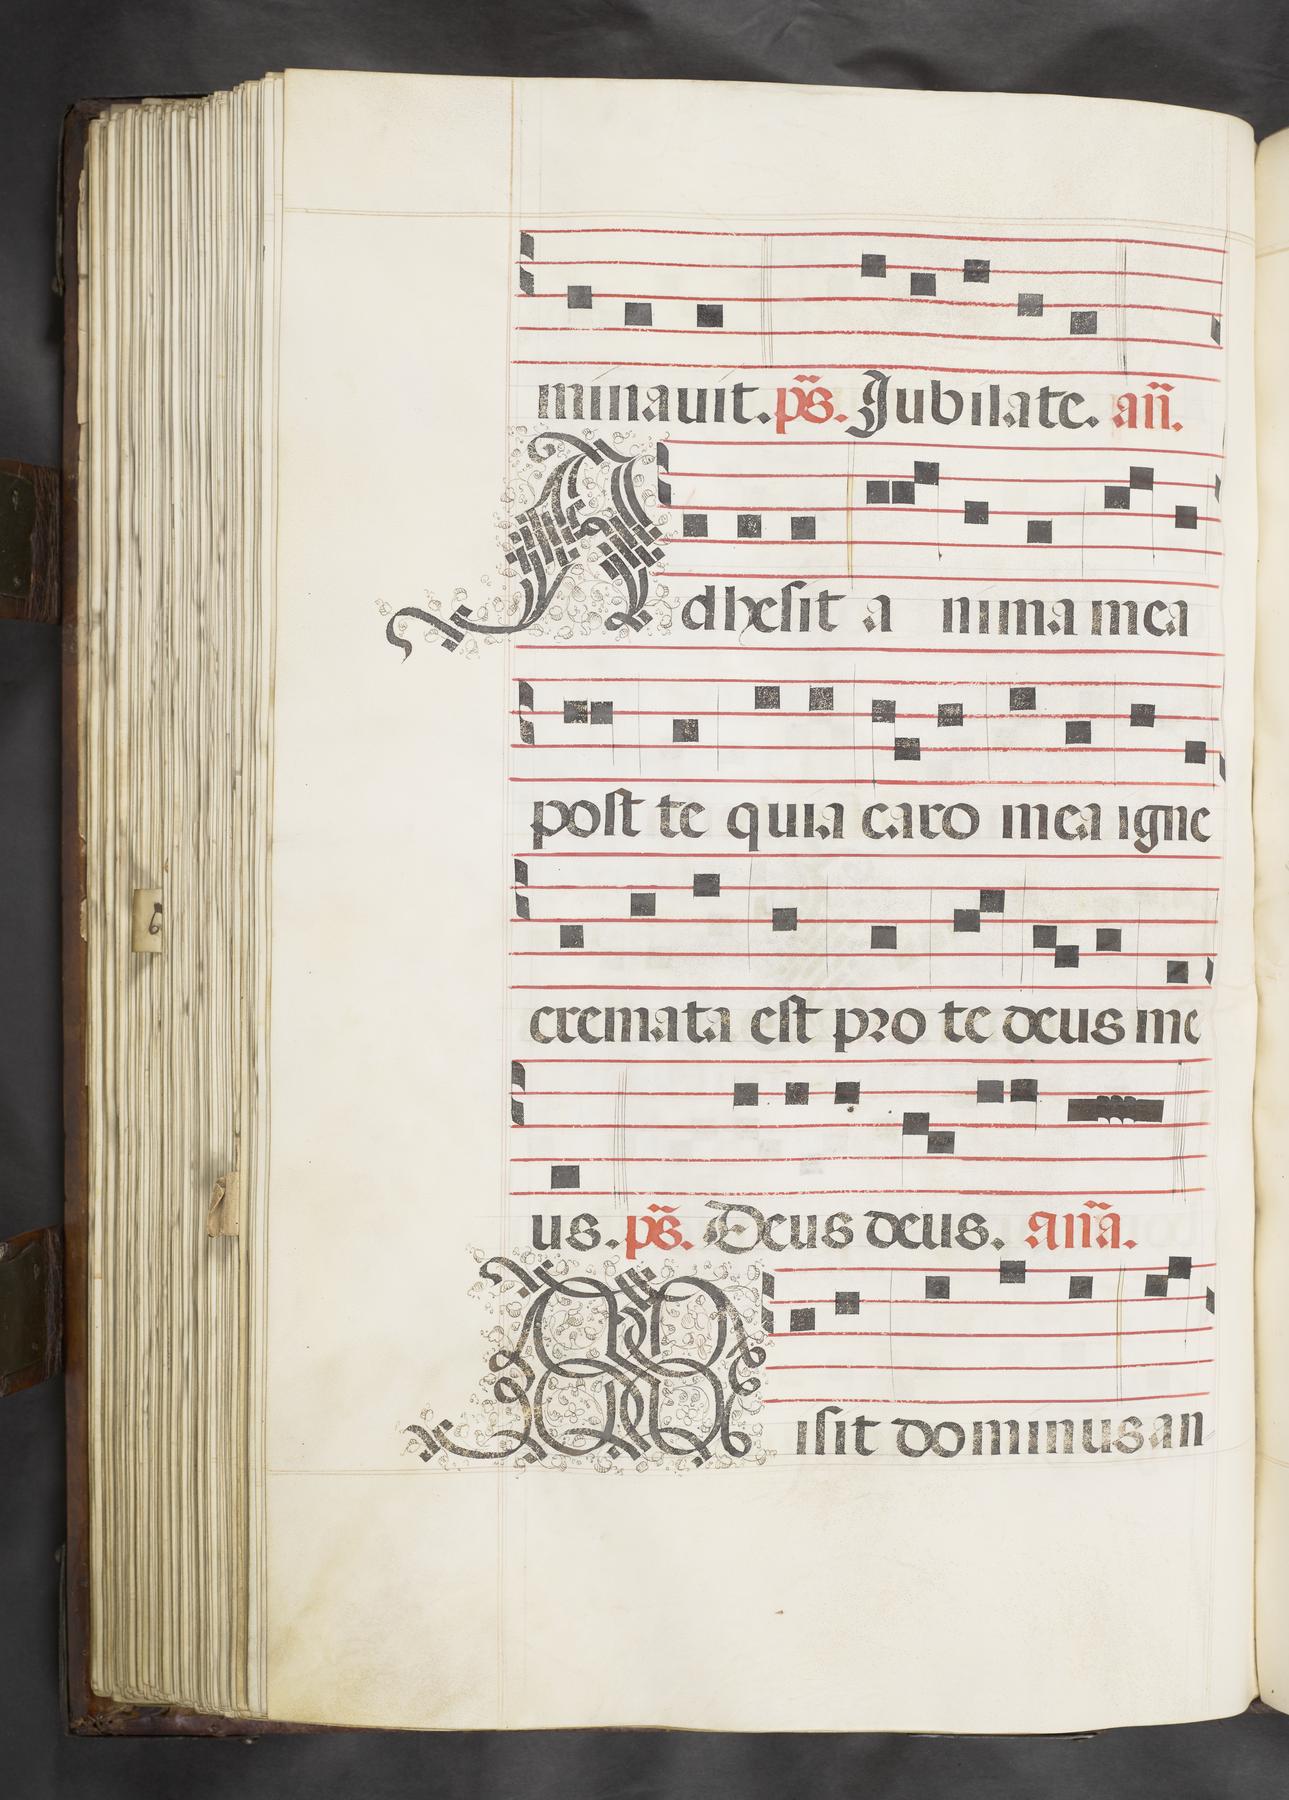 minauit. ps̃. Jubilate. añ.
Adhesit a nima mea
post te quia caro mea igne
cremata est pro te deus me
us. ps̃. Deus deus. Anã.
Misit dominus an
6